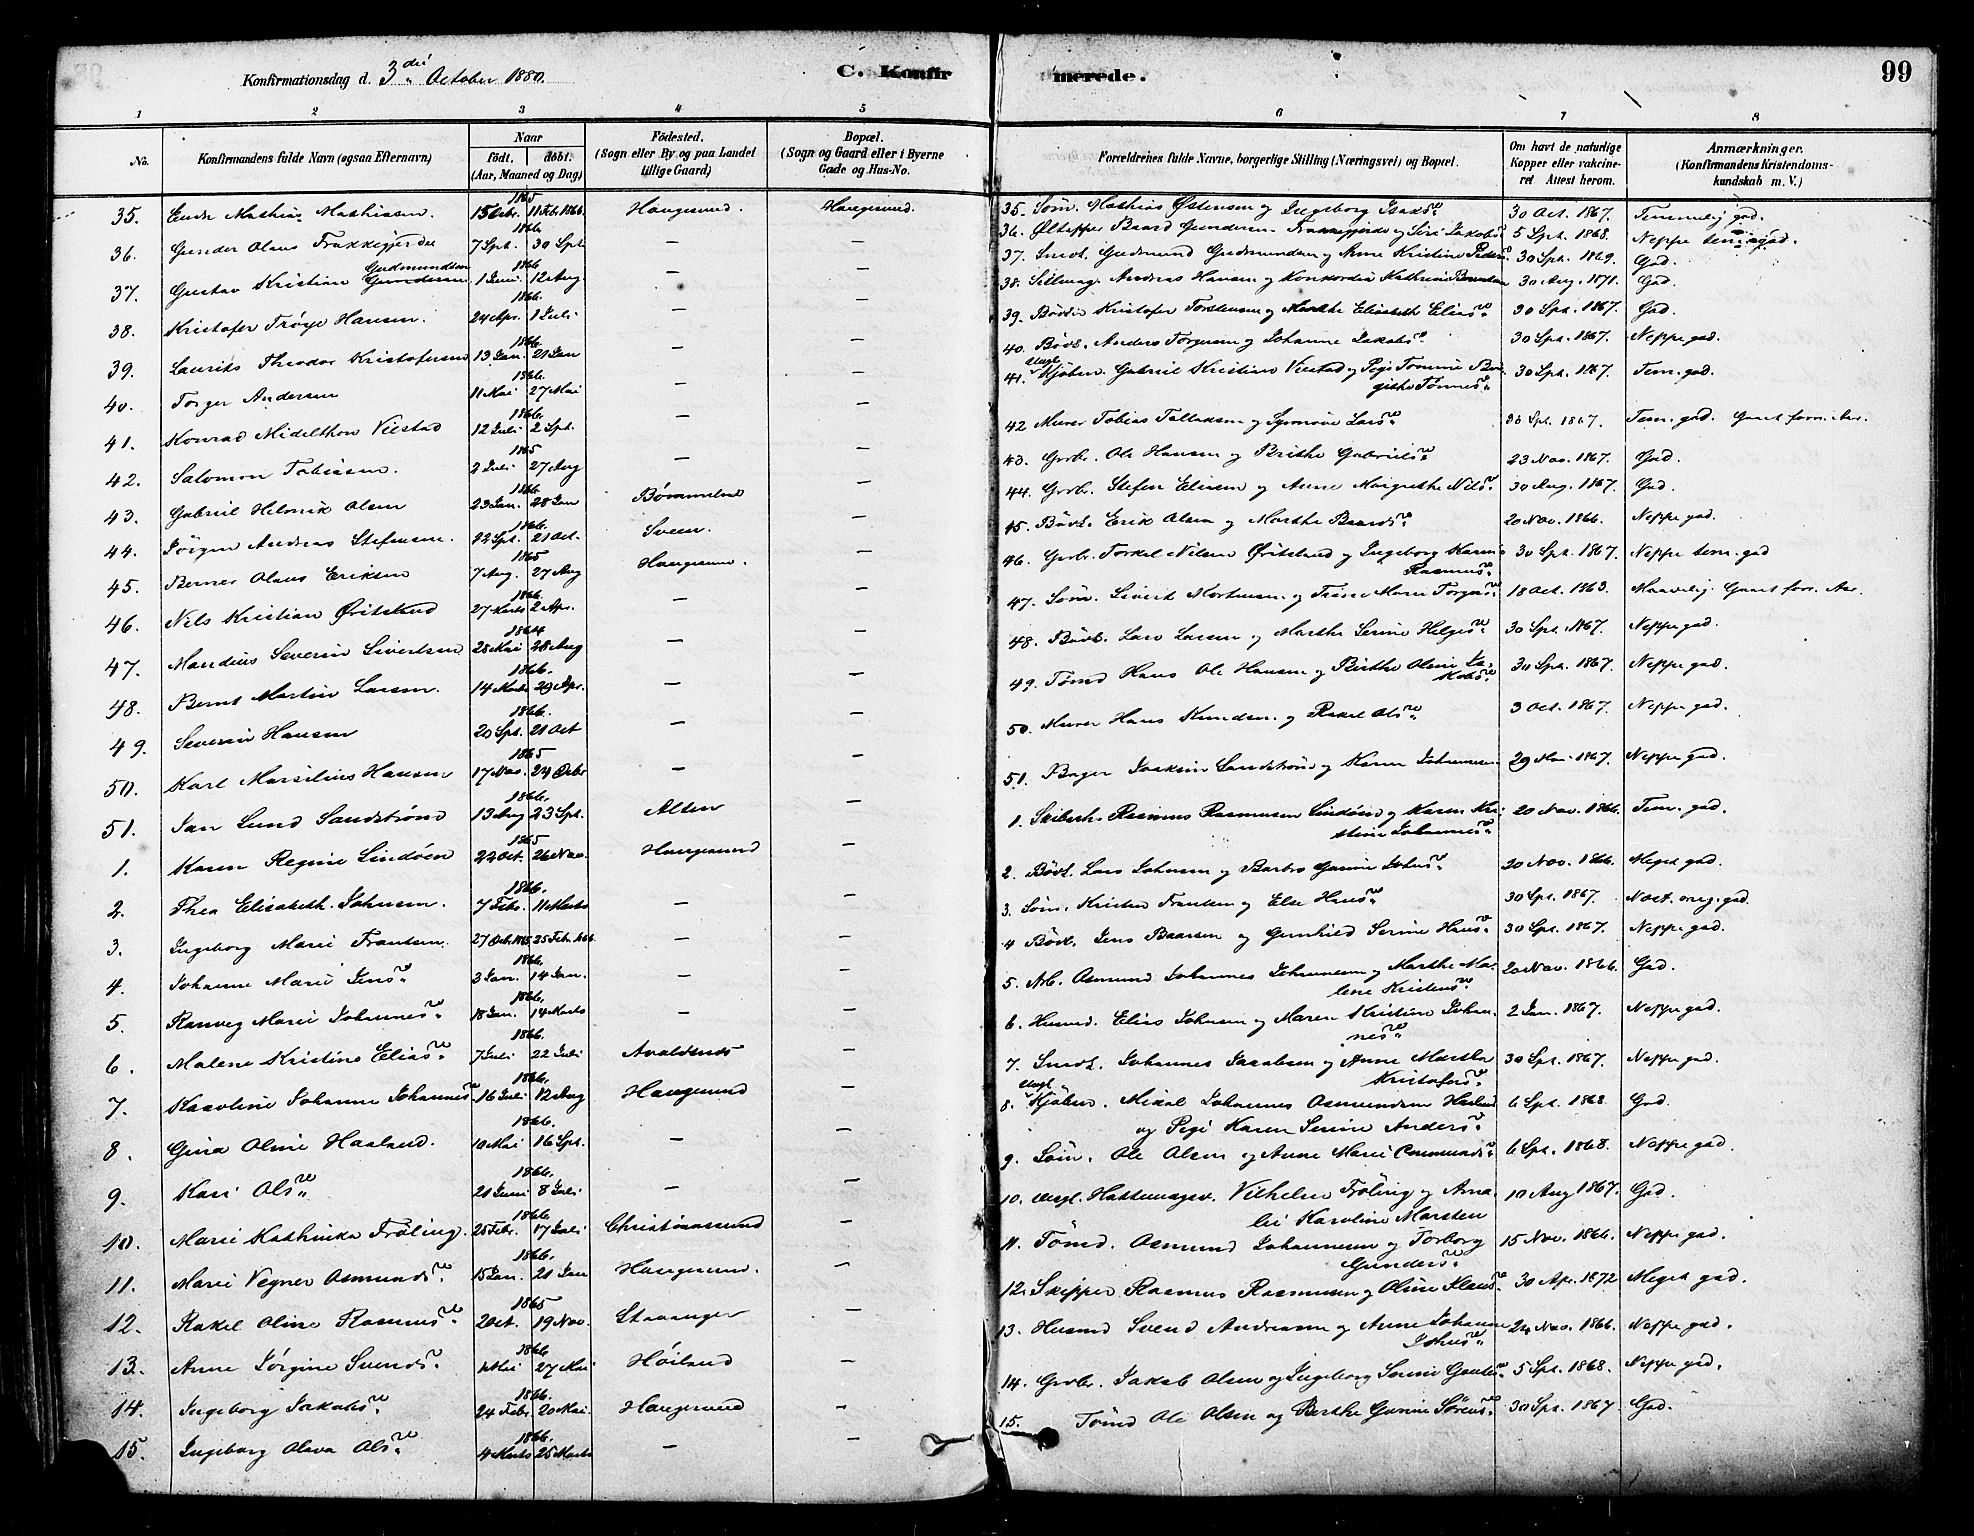 Konfirmationsdag d. 3die October 1880.
C. Konfirmerede.
99
1 2 3 4 5 6 7 8
No.
Konfirmandens fulde Navn (ogsaa Efternavn)
Naar
födt. döbt.
(Aar, Maaned og Dag)
Födested.
(Sogn eller By og paa Landet tillige Gaard)
Bopæl.
(Sogn og Gaard eller i Byerne Gade og Hus-No.
Forældrenes fulde Navne, borgerlige Stilling (Næringsvei) og Bopæl.
Om havt de naturlige Kopper eller vakcineret Attest herom.
Anmærkninger.
(Konfirmandens Kristendomskundskab m. V.)
35. Mathias Mathisen. 1865 11 Febr. 1866. Haugesund. Haugesund. 35. Søm. Mathias Østensen og Ingeborg Isaks 30 Oct. 1867. Temmelig god.
36. Gunder Olaus Frakkagjerde 1866 7 Spt. 30 Spt — — 36. Baard Gundersen Frakkagjerde og Siri Jakobs 5 Spt. 1868. Neppe tem. god.
37. Gustav Kristian Gudmundsen 1866 1 Juni 12 Aug — — 37. Gudmund Gudmundsen og Anne Kristine Peders 30 Spt. 1869. God.
38. Kristofer Trøye Hansen. 1866. 24 Apr. 1 Juli — — 38. Andreas Hansen og Konkordia Kathrine 30 Aug. 1871. God.
39. Laurits Theodor Kristofersen 1866 13 Jan 21 Jan — — 39. Kristofer Torstensen og Marthe Elisabeth Elias 30 Spt. 1867. God.
40. Torger Andersen 1866. 11 Mai 27 Mai — — 40. Bødk. Anders Torgersen og Johanne Jakobs 30 Spt. 1867. Neppe god.
41. Konrad Midelthon Viestad 1866 12 Juli 2 Spt. — — 41. Kjøbm. Gabriel Kristian Viestad og Pige Tomine Birgithe Tønnes 30 Spt. 1867. Tem. god.
42. Salomon Tobiasen. 1865 2 Juli 27 Aug — — 42 Murer Tobias Tolleksen og Synnøve Lars 30 Spt. 1867. Tem. god.
43. Gabriel Helmik Olsen 1866 23 Jan. 28 Jan Bømmeløen — 43. Grbr. Ole Hansen og Brithe Gabriels 23 Nov. 1867. God.
44. Jørgen Andreas Stefensen. 1866. 12 Spt. 21 Oct. Sveen. — 44. Grbr. Stefen Eliasen og Anne Margrethe Nils 30 Aug. 1867. God.
45. Berner Olaus Eriksen 1865 7 Aug. 27 Aug Haugesund — 45. Bødk. Erik Olsen og Marthe Baards 20 Nov. 1866. Neppe god.
46. Nils Kristian Øritsland 1866. 27 Marts 2 Apr. — — 46. Grbr. Torkel Nilsen Øritsland og Ingeborg Karine Rasmus 30 Spt. 1867. Neppe tem. god
47. Mandius Severin Sivertsen 1864 28 Mai 28 Aug — — 47. Søm. Sivert Mortensen og Trine Marie Torgers 18 Oct. 1863.
48. Bernt Martin Larsen. 1866. 14 Marts 29 Apr. — — 48. Bødk. Lars Larsen og Marthe Serine Helges 30 Spt. 1867. Neppe god.
49. Severin Hansen 1866. 20 Spt. 21 Oct — — 49. Tømd Hans Ole Hansen og Birthe Oline Jakobs 30 Spt. 1867. Neppe god.
50. Karl Marselius Hansen 1865 17 Nov. 24 Decbr — — 50. Murer Hans Knudsen og Rakel Ols 3 Oct. 1867. Neppe god.
51. Jan Lund Sandstrøm 1866. 13 Aug 23 Spt. Alten — 51. Bager Joakim Sandstrøm og Karen Johannesen 29 Mai 1867. Neppe god.
1. Karen Regine Lindøen 1865 22 Oct. 26 Nov. Haugesund — 1. Rasmus Rasmussen Lindøen og Karen Kristine Johannes 20 Nov. 1866. Tem. god.
2. Thea Elisabeth Johnsen. 1866. 7 Febr. 11 Marts — — 2. Bødk. Lars Johnsen og Barbro Gurine Johns 20 Nov. 1866. Meget god.
3. Ingeborg Marie Frantsen. 27 Decbr. 1865 25 Febr. 1866. — — 3. Søm. Kristen Frantsen og Else Hans 30 Spt. 1867.
4. Johanne Marie Jens 1866. 3 Jan. 14 Jan. — — 4 Bødk. Jens Baarsen og Gunhild Serine Hans 30 Spt. 1867. Neppe god.
5. Ranveg Marie Johannes 1866. 18 Jan. 14 Marts — — 5. Arb. Osmund Johannes Johannesen og Marthe Malene Kristens 20 Nov. 1866. God.
6. Malene Kristine Elias 1866. 7 Juli 22 Juli Avaldsnes — 6. Husmd. Elias Johnsen og Maren Kristine Johannes 2 Jan. 1867. Neppe god.
7. Karoline Johanne Johannes 1866. 16 Juli 12 Aug Haugesund — 7. Johannes Jacobsen og Anne Martha Kristofers 30 Spt. 1867. Neppe god.
8. Gina Oline Haaland. 1866. 10 Mai 16 Spt. — — 8. Kjøbm. Mikal Johannes Osmundsen Haaland og Pige Karen Serine Anders 6 Spt. 1868. God.
9. Kari Ols 1866. 21 Juni 8 Juli — — 9. Søm. Ole Olsen og Anne Marie Osmunds 6 Spt. 1868. Neppe god.
10. Marie Kathinka Frøling. 1866. 25 Febr. 17 Juli Christianssund — 10. Ungk. Hattemagersv. Vilhelm Frøling og Amalie Karoline Marsten 10 Aug 1867. God.
11. Marie Vegner Osmunds 1866. 15 Jan. 21 Jan Haugesund. — 11. Tømd. Osmund Johannesen og Torborg Gunders 15 Nov. 1866. Neppe god.
12. Rakel Oline Rasmus 1865 2 Oct. 19 Nov. Stavanger — 12. Skipper Rasmus Rasmussen og Oline Klaus 30 Apr. 1872 Meget god.
13. Anne Jørgine Svends 1866 1 Mai 27 Mai Høiland — 13. Husmd Svend Andreasen og Anne Johanne Johns 24 Nov. 1866. Neppe god.
14. Ingeborg Jakobs 1866. 24 Febr 20 Mai. Haugesund — 14. Grbr. Jakob Olsen og Ingeborg Serine Gaute 5 Spt. 1868. Neppe god.
15. Ingeborg Olava Ols 1866. 4 Marts 25 Marts — — 15. Tømd Ole Olsen og Berthe Gurine Sørens 30 Spt. 1867 God.